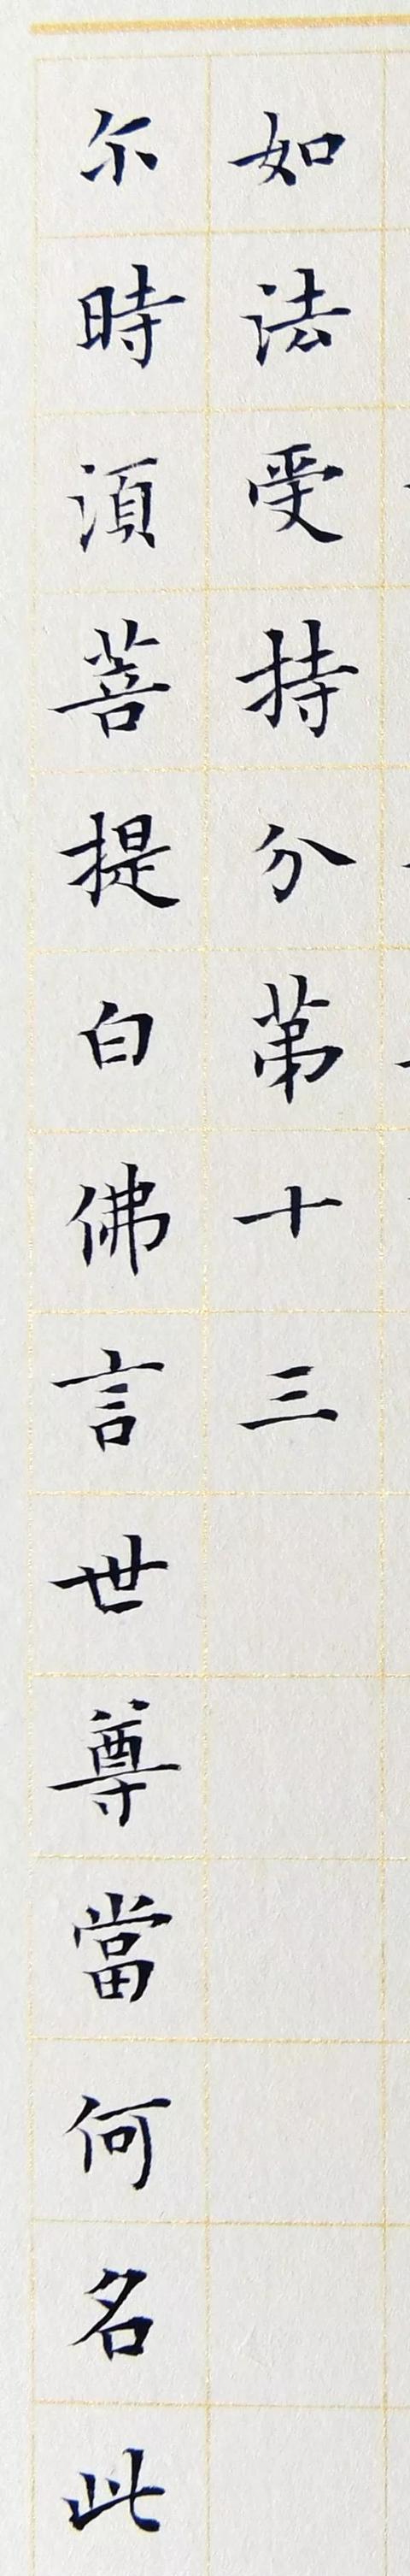 如法受持分第十三
尔時湏菩提白佛言世尊當何名此